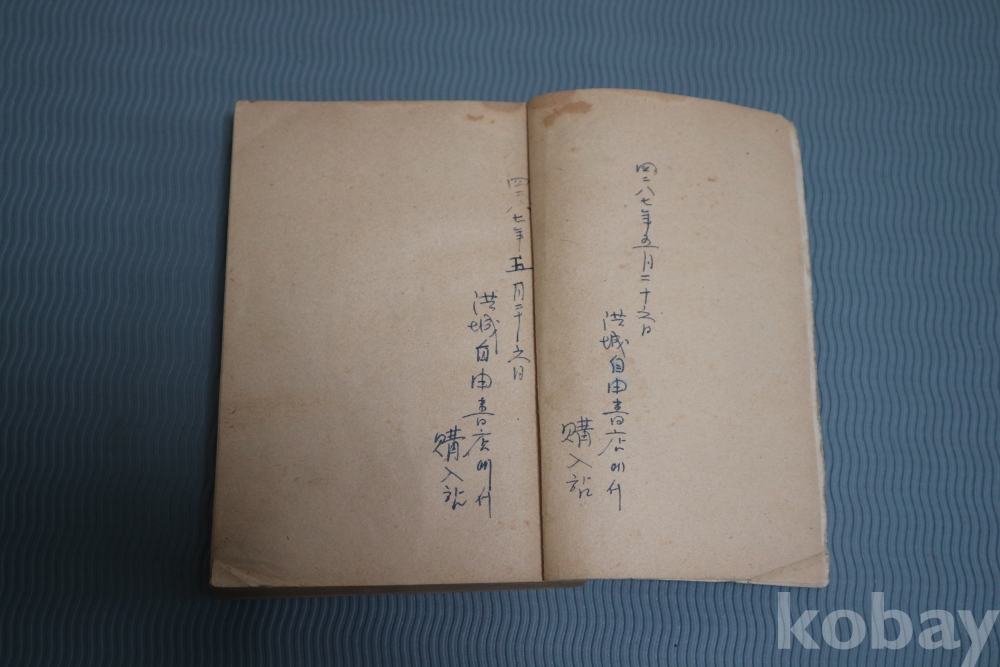 四二八七年五月二十六日
洪城自由書店에서
購入함
四二八七年五月二十六日
洪城自由書店에서
購入함
kobay